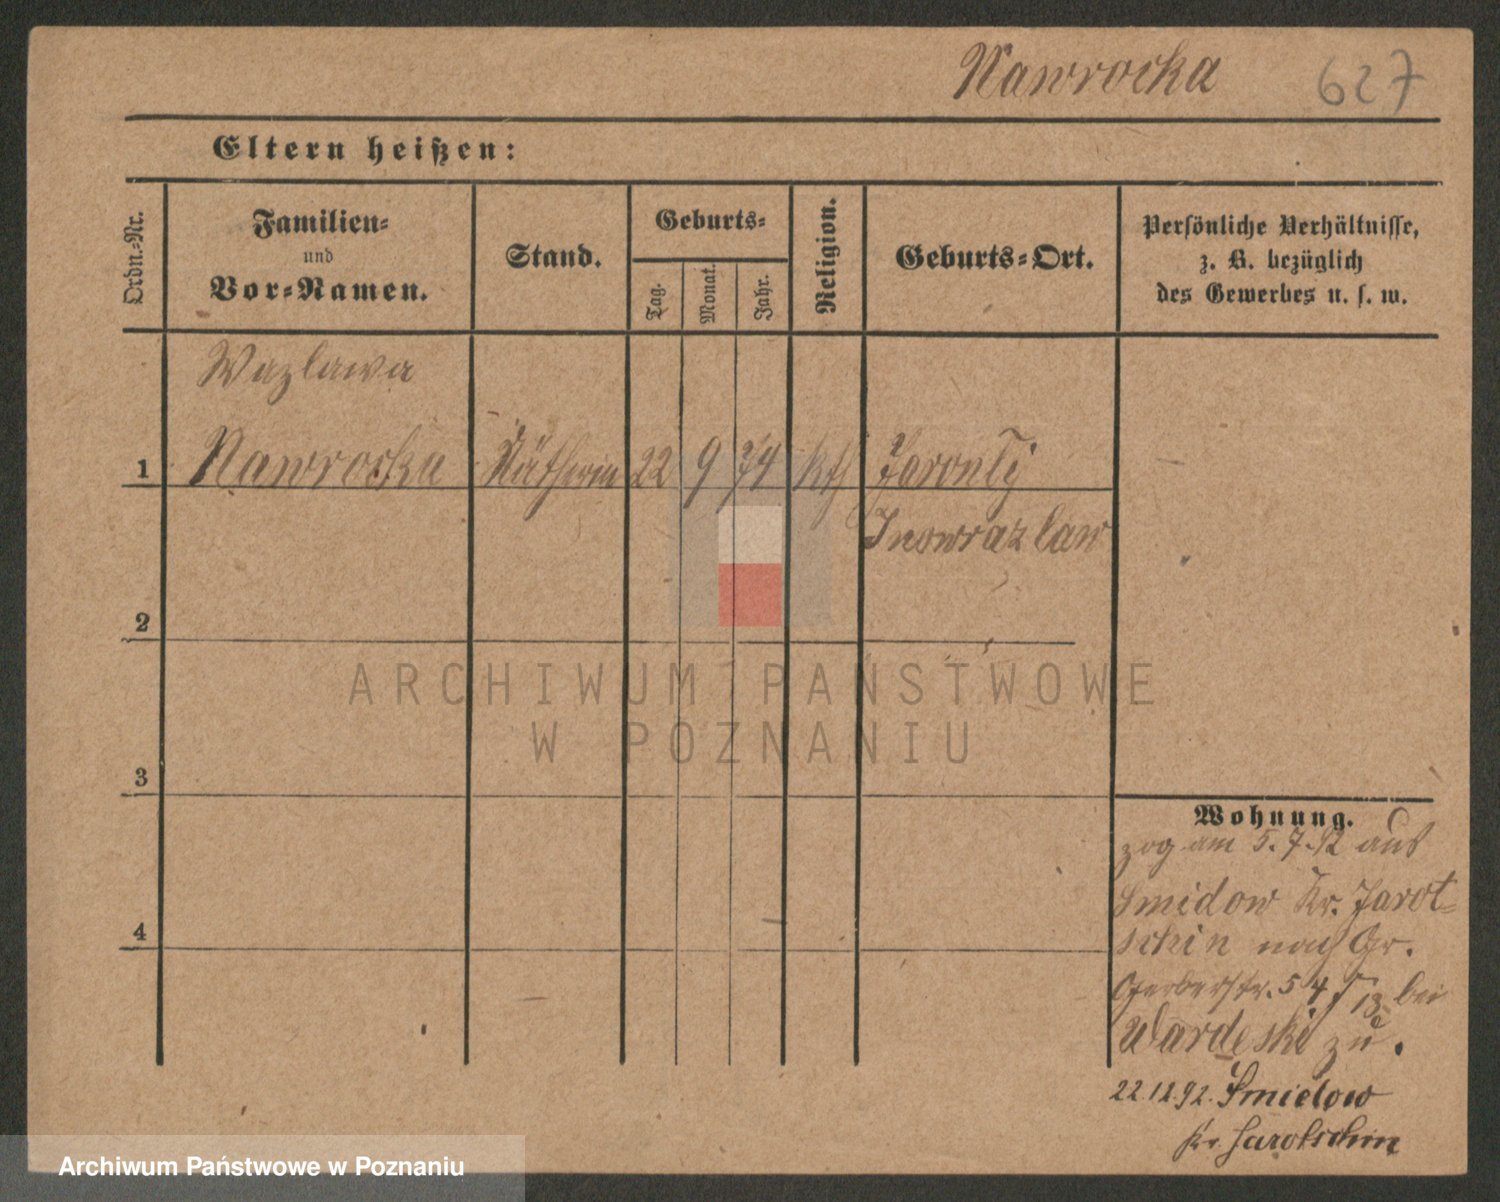 Nawrocka 627
Eltern heißen:
Ordn.-Nr.
Familien-
und
Vor-Namen.
Stand.
Geburts-
Tag.
Monat.
Jahr.
Religion.
Geburts-Ort.
Persönliche Verhältnisse,
z. B. bezüglich
des Gewerbes u. s. w.
Wazlawa
1 Nawrocka Nätherin 22 9 74 kth
Inowrazlaw
2
3
4
ARCHIWUM PAŃSTWOWE
W POZNANIU
Wohnung.
zog am 5.7.92 aus
Smidow Kr. Jarot-
schin nach Gr.
Gerberstr. 54 bei
Wardeski zu.
22.12.92. Smielow
Kr. Jarotschin
Archiwum Państwowe w Poznaniu